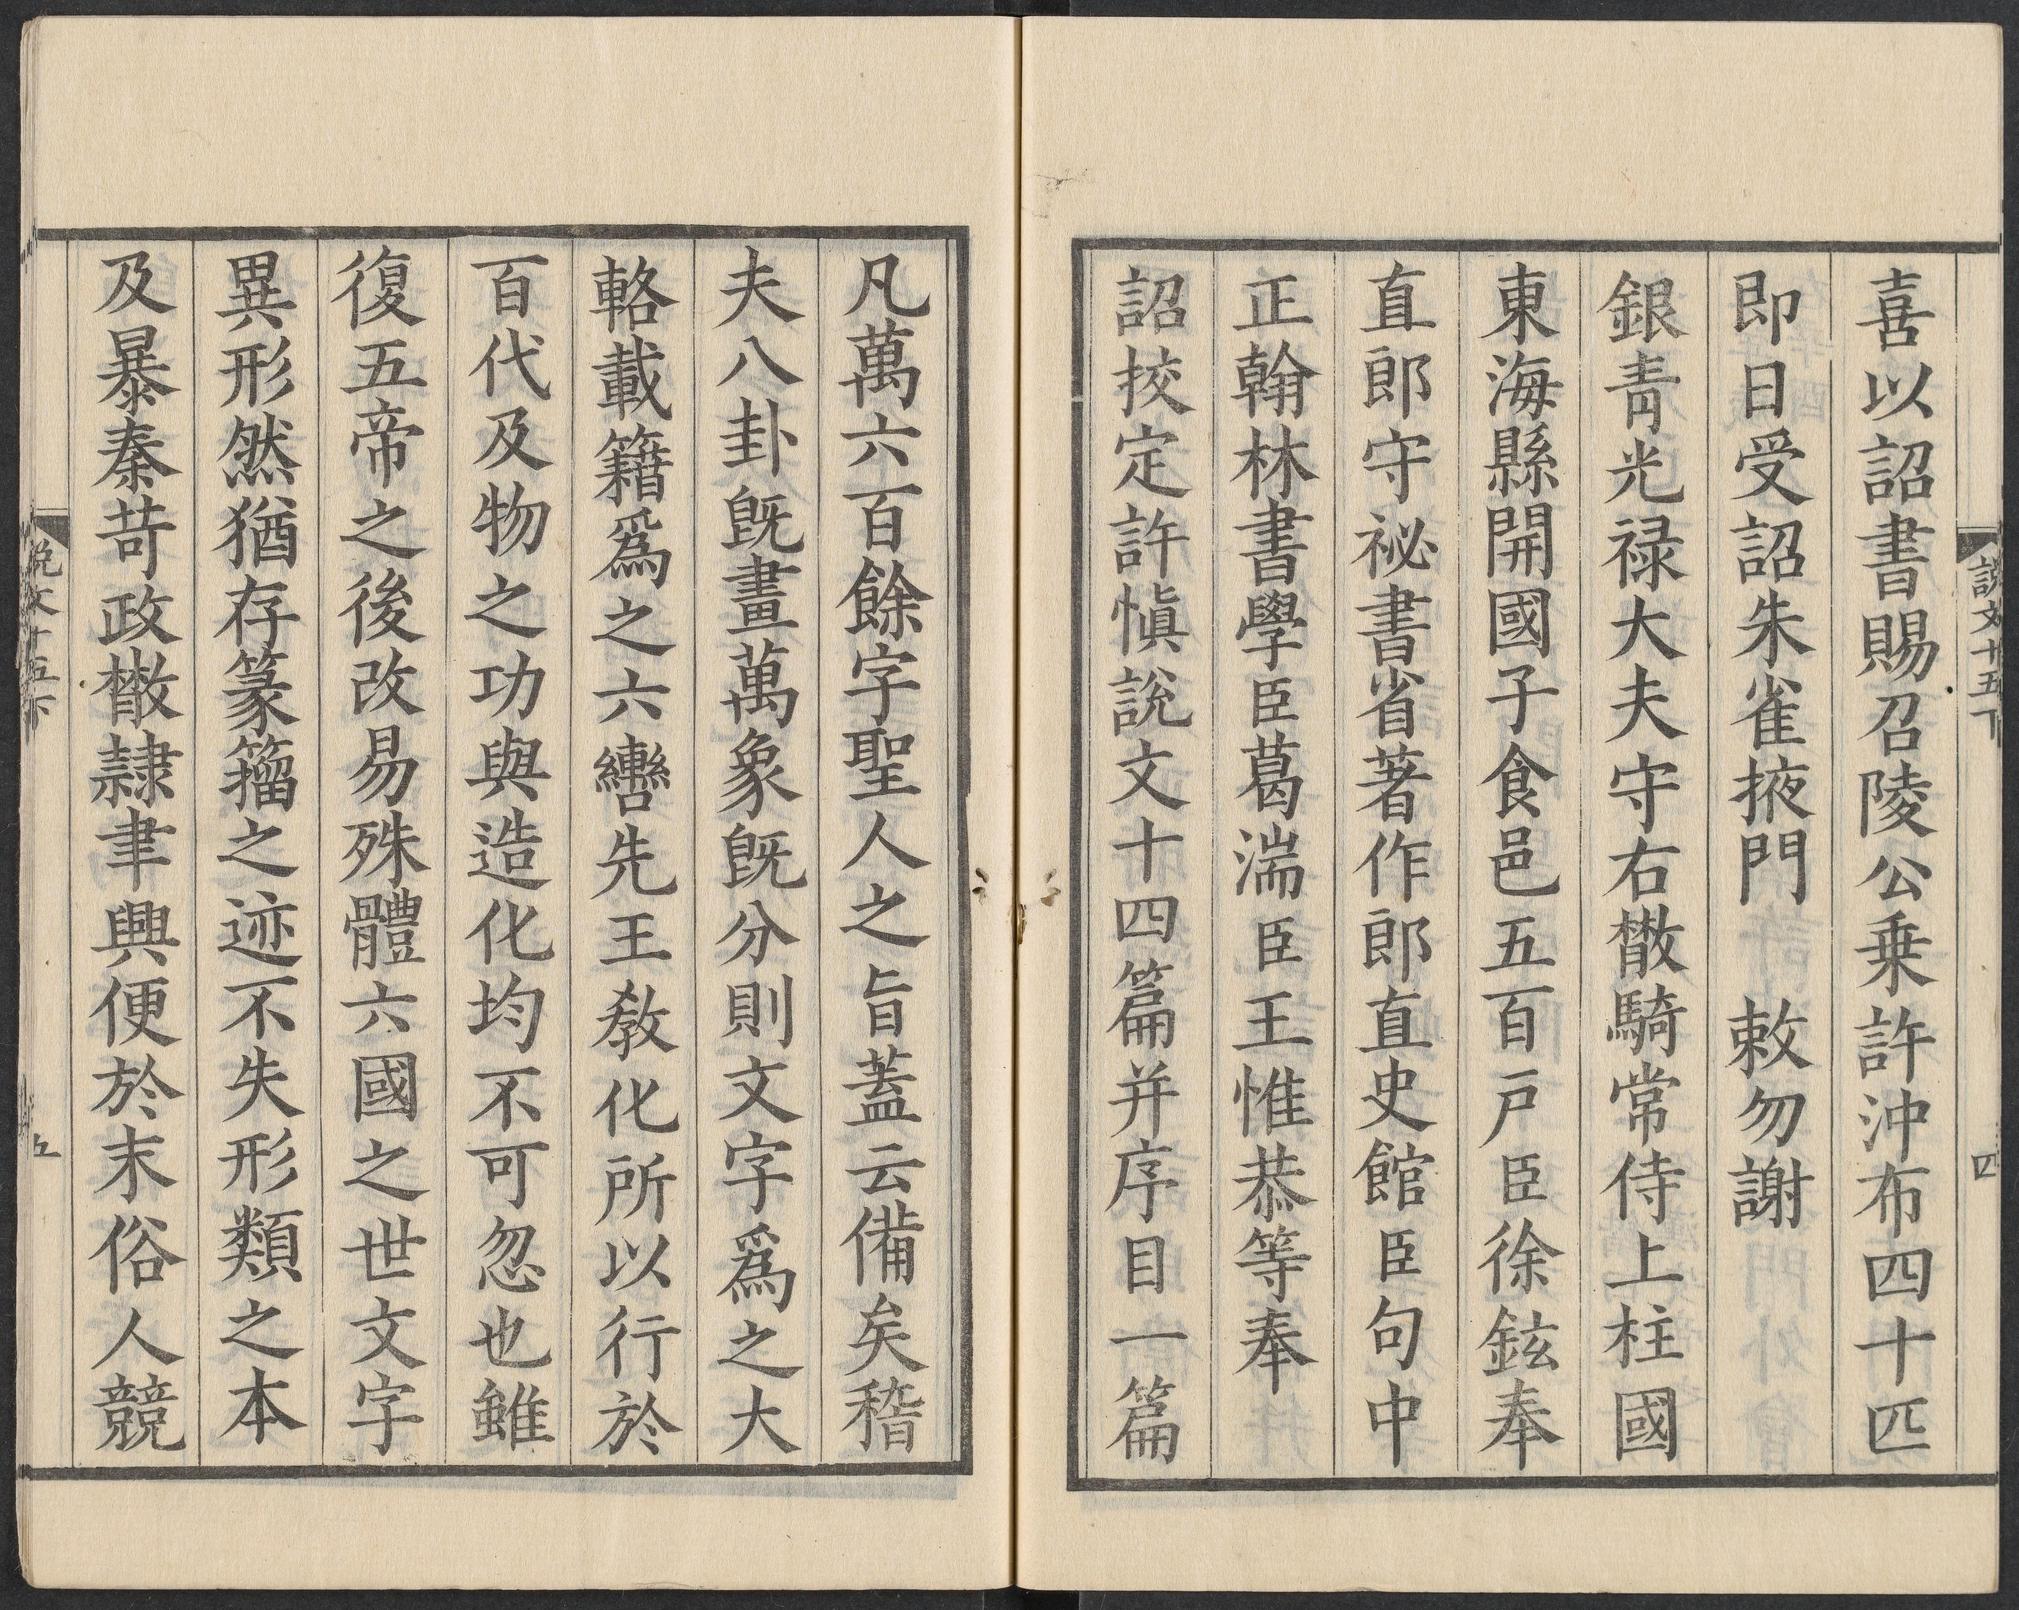 喜以詔書賜召陵公乗許沖布四十匹
即日受詔朱雀掖門　敕勿謝
銀青光禄大夫守右散騎常侍上柱國
東海縣開國子食邑五百戸臣徐鉉奉
直郎守祕書省著作郎直史館臣句中
正翰林書學臣葛湍臣王惟恭等奉
詔挍定許慎說文十四篇并序目一篇
說文十五下
四
凡萬六百餘字聖人之旨蓋云備矣稽
夫八卦旣畫萬象旣分則文字爲之大
輅載籍爲之六轡先王敎化所以行於
百代及物之功與造化均不可忽也雖
復五帝之後改易殊體六國之世文字
異形然猶存篆籀之迹不失形類之本
及暴秦苛政散隷聿興便於末俗人競
說文十五下
五